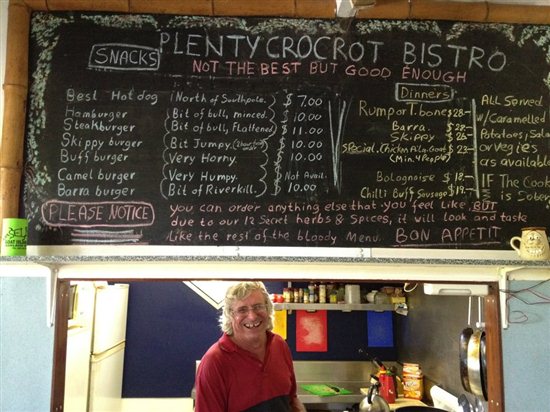 PLENTY CROCROT BISTRO
SNACKS
NOT THE BEST BUT GOOD ENOUGH
Best Hotdog (North of Southpole. $ 7.00
Hamburger (Bit of bull, minced. 10.00
Steakburger (Bit of bull, Flattened. $ 11.00
Skippy burger (Bit Jumpy. 10.00
Buff burger (Very Horny. 10.00
Camel burger (Very Humpy. Not Avail.
Barra burger (Bit of Riverkill. $ 10.00
Dinners
Rump or T.bone $28-
Barra. $ 28-
Skippy $ 26-
SPECIAL. Chicken Ala-Goat $ 23-
(Min. 4 People)
Bolognaise $ 18-
Chilli Buff Sausage $19-
ALL Served
w/Caramelled
Potatoes, Salad
or vegies
as available
IF The Cook
is Sober
PLEASE NOTICE
you can order anything else that you feel like, BUT
due to our 12 Secret herbs & Spices, it will look and taste
Like the rest of the bloody Menu. BON APPETIT